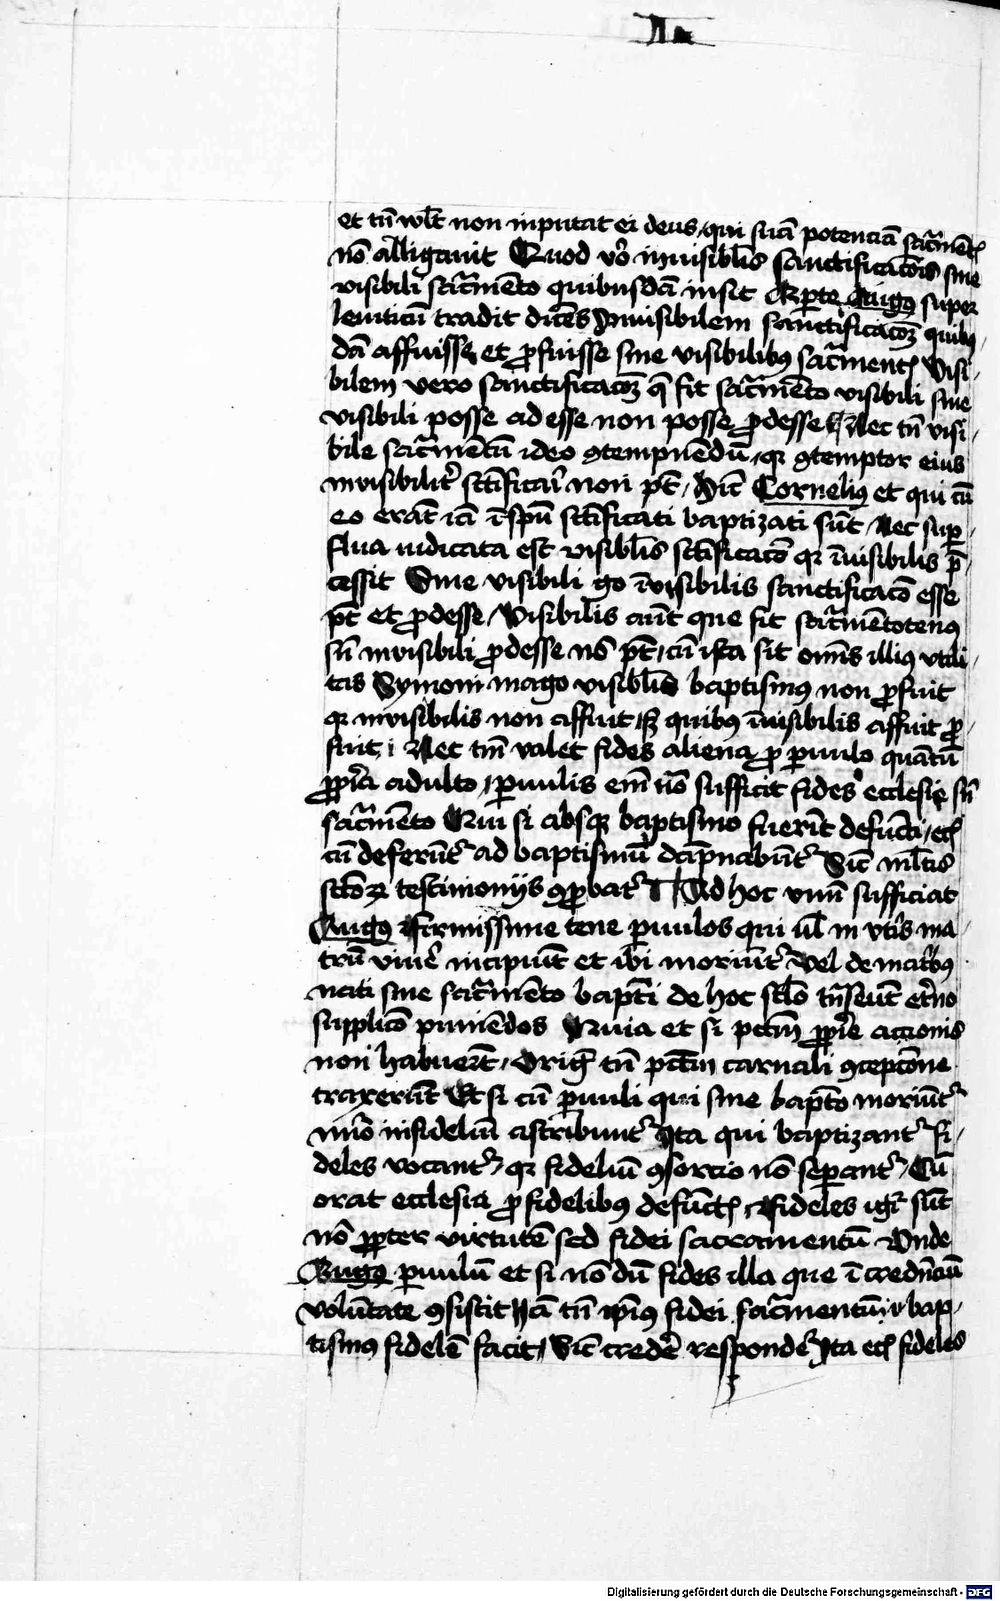 et tn̄ vult non inputat ei deus / qui suā potenciā sacͣmentꝭ
nō alligauit Quod vͦo inuisibilis sanctificacōis sine
visibili sacͣmēto quibusdā insit Aperte Augꝰ super
leuiticū tradit dicēs Inuisibilem sanctificacōꝫ quibꝰ /
dā affuisse et ꝓfuisse sine visibilibꝰ sacͣmentꝭ Visi /
bilem vero sanctificacōꝫ q̄ fit sacͣmēto visibili sine
visibili posse adesse non posse ꝓdesse Nec tn̄ visi /
bile sacͣmentū ideo ꝯtempnēdū / qꝛ ꝯtemptor eius
invisibilit̉ scīficari non pt̄ / hīc Cornelius et qui cū
eo erāt iā ī spū scīficati baptizati sūt / Nec sup /
flua iudicata est visibilis scīficacō qꝛ īuisibilis p̄
cessit Sine visibili gͦ īvisibilis sanctificacō esse
pt̄ et ꝓdesse / Visibilis aūt que fit sacͣmētotenꝰ
sn̄ invisibili ꝓdesse nō pt̄ / cū ista sit omīs illiꝰ vtili /
tas Symoni mago visibilis baptismꝰ non ꝓfuit
qꝛ invisibilis non affuit / sꝫ quibꝰ īuisibilis affuit ꝓ /
fuit / Nec tm̄ valet fides aliena ꝓ ꝑuulo quātū
ꝓpͥa adulto / ꝑuulis em̄ nō sufficit fides ecclesie sn̄
sacͣmēto Qui si absqꝫ baptismo fuerīt defūcti / ecꝭ
cū deferūt᷑ ad baptismū dāpnabūt᷑ Sic ml̄tis
scōꝝ testimonijs ꝯprobat᷑ Ad hoc vnū sufficiat
Augꝰ Firmissime tene ꝑuulos qui ul̄ in vtīs ma /
trū viuē incipiūt et ibi moriūt᷑ Vel de matibꝰ
nati sine sacͣmēto bapti de hoc sclo tn̄seūt et̉no
supplicō puniēdos Quia et si pccm̄ ꝓpͥe accionis
non habuerīt / Origͥ tn̄ pccm̄ carnali ꝯcepcōne
traxerūt Et si cū ꝑuuli qui sine bapto moriūt᷑
nūo infideliū ascribunt᷑ Ita qui baptizant᷑ fi /
deles vocant᷑ / qꝛ fideliū ꝯsorcio nō sepant᷑ / Cū
orat ecclesia ꝓ fidelibꝰ defūctꝭ / Fideles igͥ sūt
nō ꝓpter virtutē sed fidei sacramentū Vnde
Augꝰ ꝑuulū et si nō dū fides illa que ī credn̄ciū
volūtate ꝯsistit Iā tn̄ ip̄ius fidei sacͣmentū .i. bap /
tismꝰ fidelē facit / Sic credē respondē Ita ecꝭ fideles